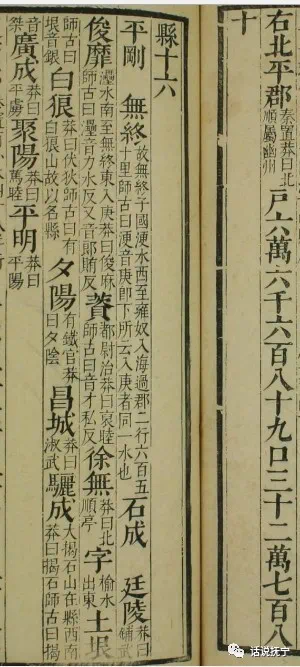 右北平郡秦置莽曰北順屬幽州戶六萬六千六百八十九口三十二萬七百八
十
縣十六
平剛 無終故無終子國浭水西至雍奴入海過郡二行六百五十里師古曰浭音庚即下所云入庚者同一水也石成 廷陵莽曰鋪武
俊靡灅水南至無終東入庚莽曰俊麻師古曰灅音力水反又音郎賄反薋都尉治莽曰裒睦師古曰音才私反徐無莽曰北順亭字榆水出東土垠
師古曰垠音銀白狼莽曰伏狄師古曰有白狼山故以名縣夕陽有鐵官莽曰夕陰昌城莽曰淑武驪成大揭石山在縣西南莽曰揭石師古曰揭
音桀廣成莽曰平虜聚陽莽曰篤睦平明莽曰平陽
话说抚宁